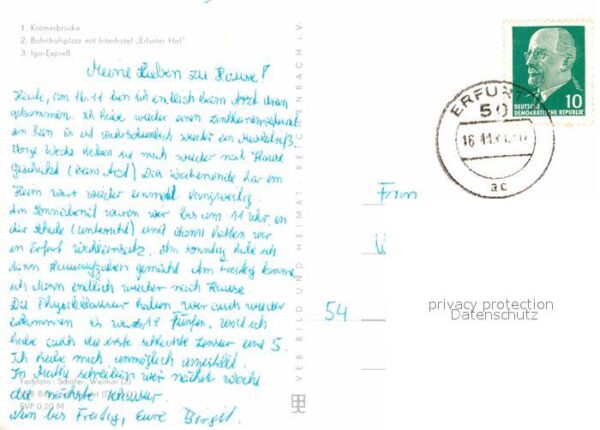 1. Krämerbrücke
2. Bahnhofsplatz mit Interhotel „Erfurter Hof"
3. Iga-Expreß
Meine Lieben zu Hause!
Heute, am 16.11 bin ich endlich beim Arzt dran
gekommen. Ich habe wieder einen
am Bein. Es ist wahrscheinlich wieder ein Muskelriß.
Vorge Woche haben sie mich wieder nach Hause
Geschickt (beim Arzt) Das Wochenende hier im
Heim war wieder einmal langweilig.
Am Sonnabend waren wir bis um 11 Uhr in
der Schule (Unterricht) und dann hatten wir
in Erfurt Am Sonntag habe ich
dann Hausaufgaben gemacht. Am Freitag komme
ich dann endlich wieder nach Hause.
Die Physikklausur haben wir auch wieder
bekommen es waren 18 Fünfen. und ich
habe auch die erste schlechte Zensur eine 5.
Ich habe mich unmöglich angestellt.
In Mathe schreiben wir nächste Woche
die nächste Klausur.
Nun bis Freitag, Eure Birgit.
Farbfoto: Schäfer, Weimar (2)
EVP 0,20 M
VEB BILD UND HEIMAT REICHENBACH i. V.
ERFURT
50
16.11.
ac
DEUTSCHE
DEMOKRATISCHE REPUBLIK
10
Frau
54
privacy protection
Datenschutz